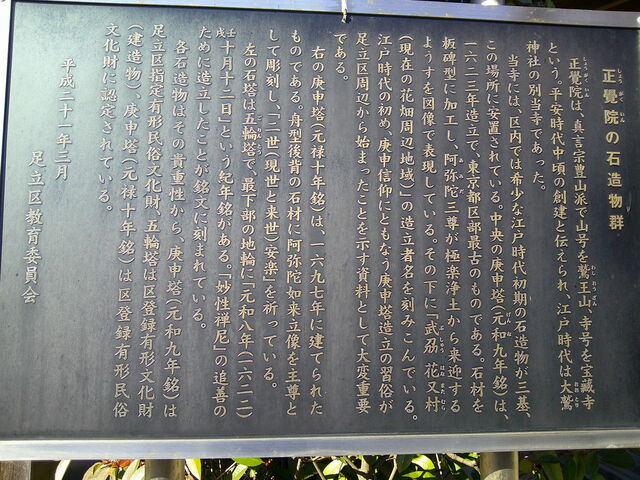 正覺院の石造物群
正覺院は、真言宗豊山派で山号を鷲王山、寺号を宝蔵寺
という。平安時代中頃の創建と伝えられ、江戸時代は大鷲
神社の別当寺であった。
当寺には、区内では希少な江戸時代初期の石造物が三基、
この場所に安置されている。中央の庚申塔(元和九年銘)は、
一六二三年造立で、東京都区部最古のものである。石材を
板碑型に加工し、阿弥陀三尊が極楽浄土から来迎する
ようすを図像で表現している。その下に「武刕花又村
(現在の花畑周辺地域)」の造立者名を刻みこんでいる。
江戸時代の初め、庚申信仰にともなう庚申塔造立の習俗が
足立区周辺から始まったことを示す資料として大変重要
である。
右の庚申塔(元禄十年銘)は、一六九七年に建てられた
ものである。舟型後背の石材に阿弥陀如来立像を主尊と
して彫刻し、「二世(現世と来世)安楽」を祈っている。
左の石塔は五輪塔で、最下部の地輪に「元和八年(一六二二)
壬戌十月十二日」という紀年銘がある。「妙性禅尼」の追善の
ために造立したことが銘文に刻まれている。
各石造物はその貴重性から、庚申塔(元和九年銘)は
足立区指定有形民俗文化財、五輪塔は区登録有形文化財
(建造物)、庚申塔(元禄十年銘)は区登録有形民俗
文化財に認定されている。
平成二十一年三月
足立区教育委員会